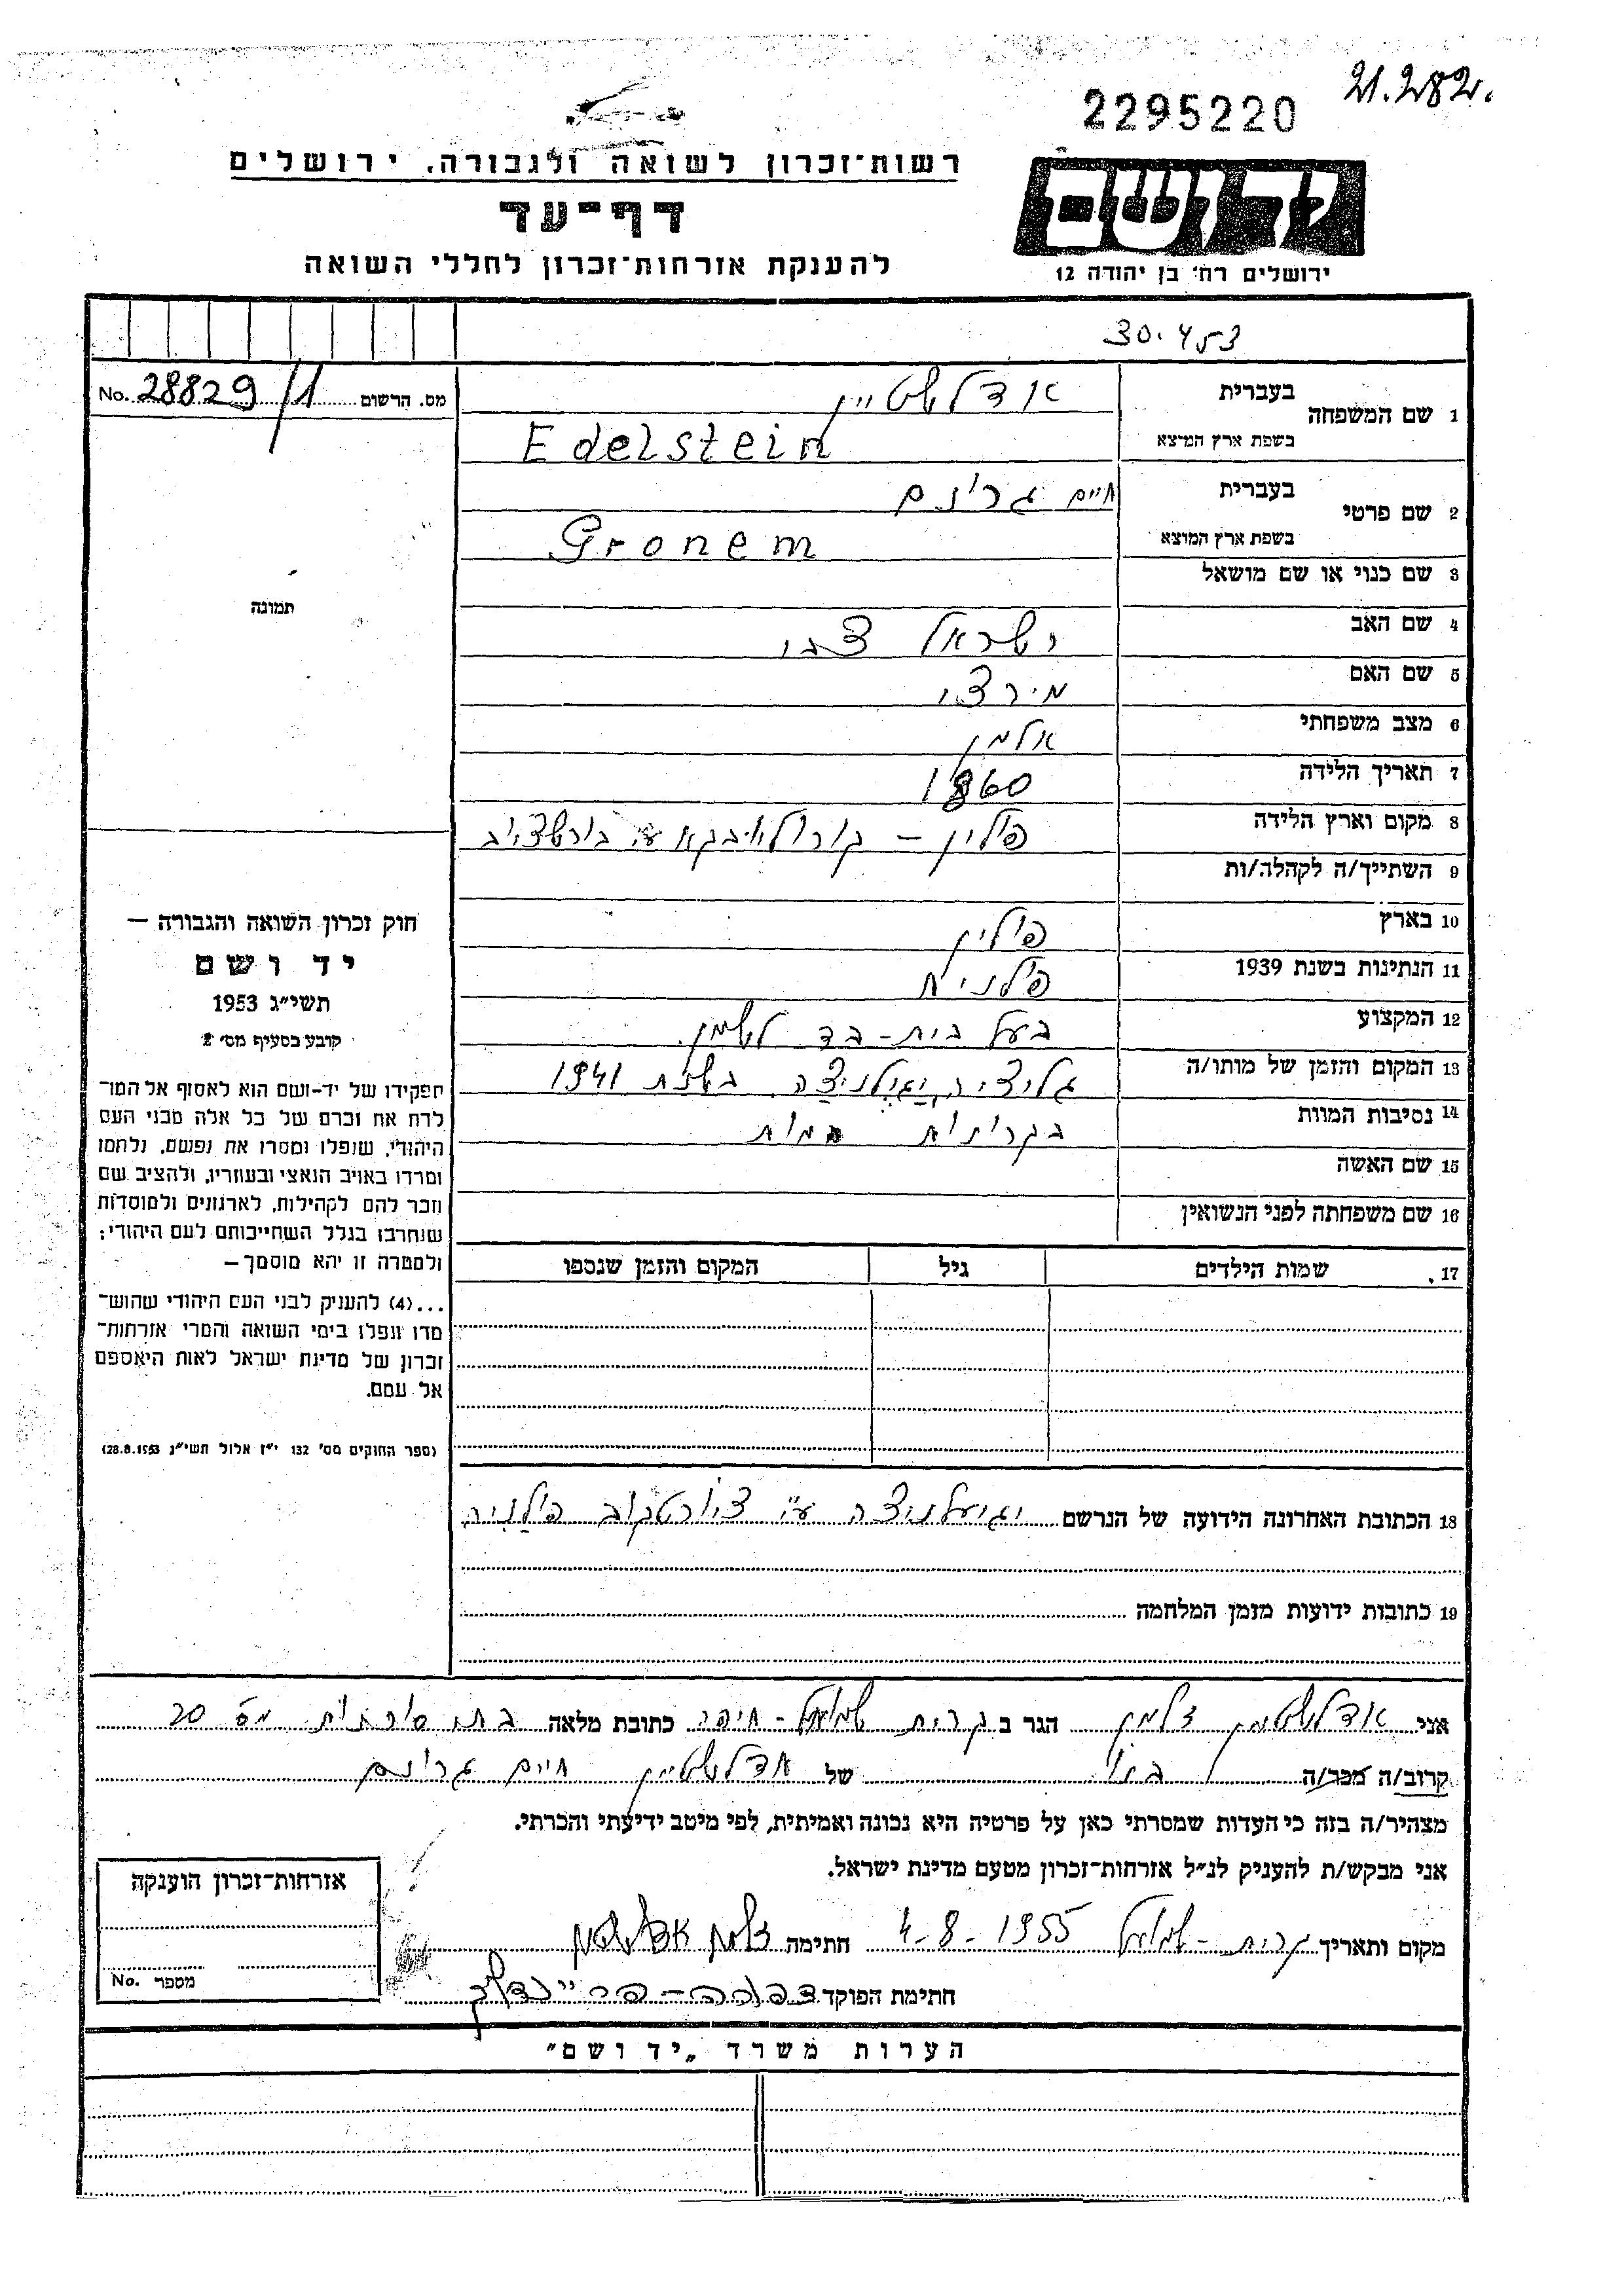 21.282.
2295220
רשות־זכרון לשואה ולגבורה, ירושלים
דף־עד
להענקת אזרחות־זכרון לחללי השואה
יד ושם
ירושלים רח' בן יהודה 12
30.453
מס. הרשום 28829/1 No.
1 שם המשפחה בעברית אדלשטיין
בשפת ארץ המוצא Edelstein
2 שם פרטי בעברית חיים גרונם
בשפת ארץ המוצא Gronem
3 שם כנוי או שם מושאל
תמונה
4 שם האב ישראל צבי
5 שם האם מירצי
6 מצב משפחתי אלמן
7 תאריך הלידה 1860
8 מקום וארץ הלידה פולין –
9 השתייך/ה לקהלה/ות
10 בארץ פולין
11 הנתינות בשנת 1939 פולנית
12 המקצוע בעל בית-בד לשמן
13 המקום והזמן של מותו/ה גליציה, בשנת 1941
14 נסיבות המוות מות
15 שם האשה
16 שם משפחתה לפני הנשואין
17. שמות הילדים גיל המקום והזמן שנספו
חוק זכרון השואה והגבורה —
יד ושם
תשי"ג 1953
קובע בסעיף מס' 2
תפקידו של יד-ושם הוא לאסוף אל המו־
לדת את זכרם של כל אלה מבני העם
היהודי, שנפלו ומסרו את נפשם, נלחמו
ומרדו באויב הנאצי ובעוזריו, ולהציב שם
וזכר להם לקהילות, לארגונים ולמוסדות
שנחרבו בגלל השתייכותם לעם היהודי;
ולמטרה זו יהא מוסמך —
...(4) להעניק לבני העם היהודי שהוש־
מדו ונפלו בימי השואה והמרי אזרחות־
זכרון של מדינת ישראל לאות היאספם
אל עמם.
(ספר החוקים מס' 132 י"ז אלול תשי"ג 28.8.1953)
18 הכתובת האחרונה הידועה של הנרשם יגיעלניצה ע"י צ'ורטקוב פולניה
19 כתובות ידועות מזמן המלחמה
אני אדלשטיין זלמן הגר ב קרית שמואל - חיפה כתובת מלאה מס 20
קרוב/ה מכר/ה בנו של אדלשטיין חיים גרונם
מצהיר/ה בזה כי העדות שמסרתי כאן על פרטיה היא נכונה ואמיתית, לפי מיטב ידיעתי והכרתי.
אני מבקש/ת להעניק לנ"ל אזרחות־זכרון מטעם מדינת ישראל.
מקום ותאריך קרית - שמואל 4-8-1955 חתימה זלמן אדלשטיין
חתימת הפוקד
אזרחות־זכרון הוענקה
מספר No.
הערות משרד „יד ושם"